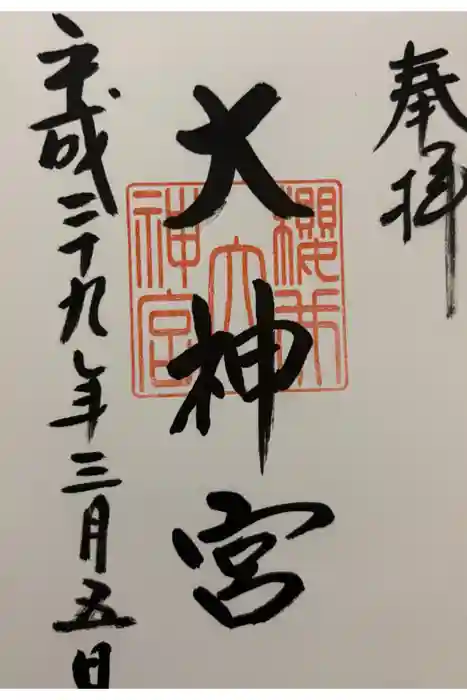 奉拝
大神宮
櫻井
大
神宮
平成二十九年三月五日